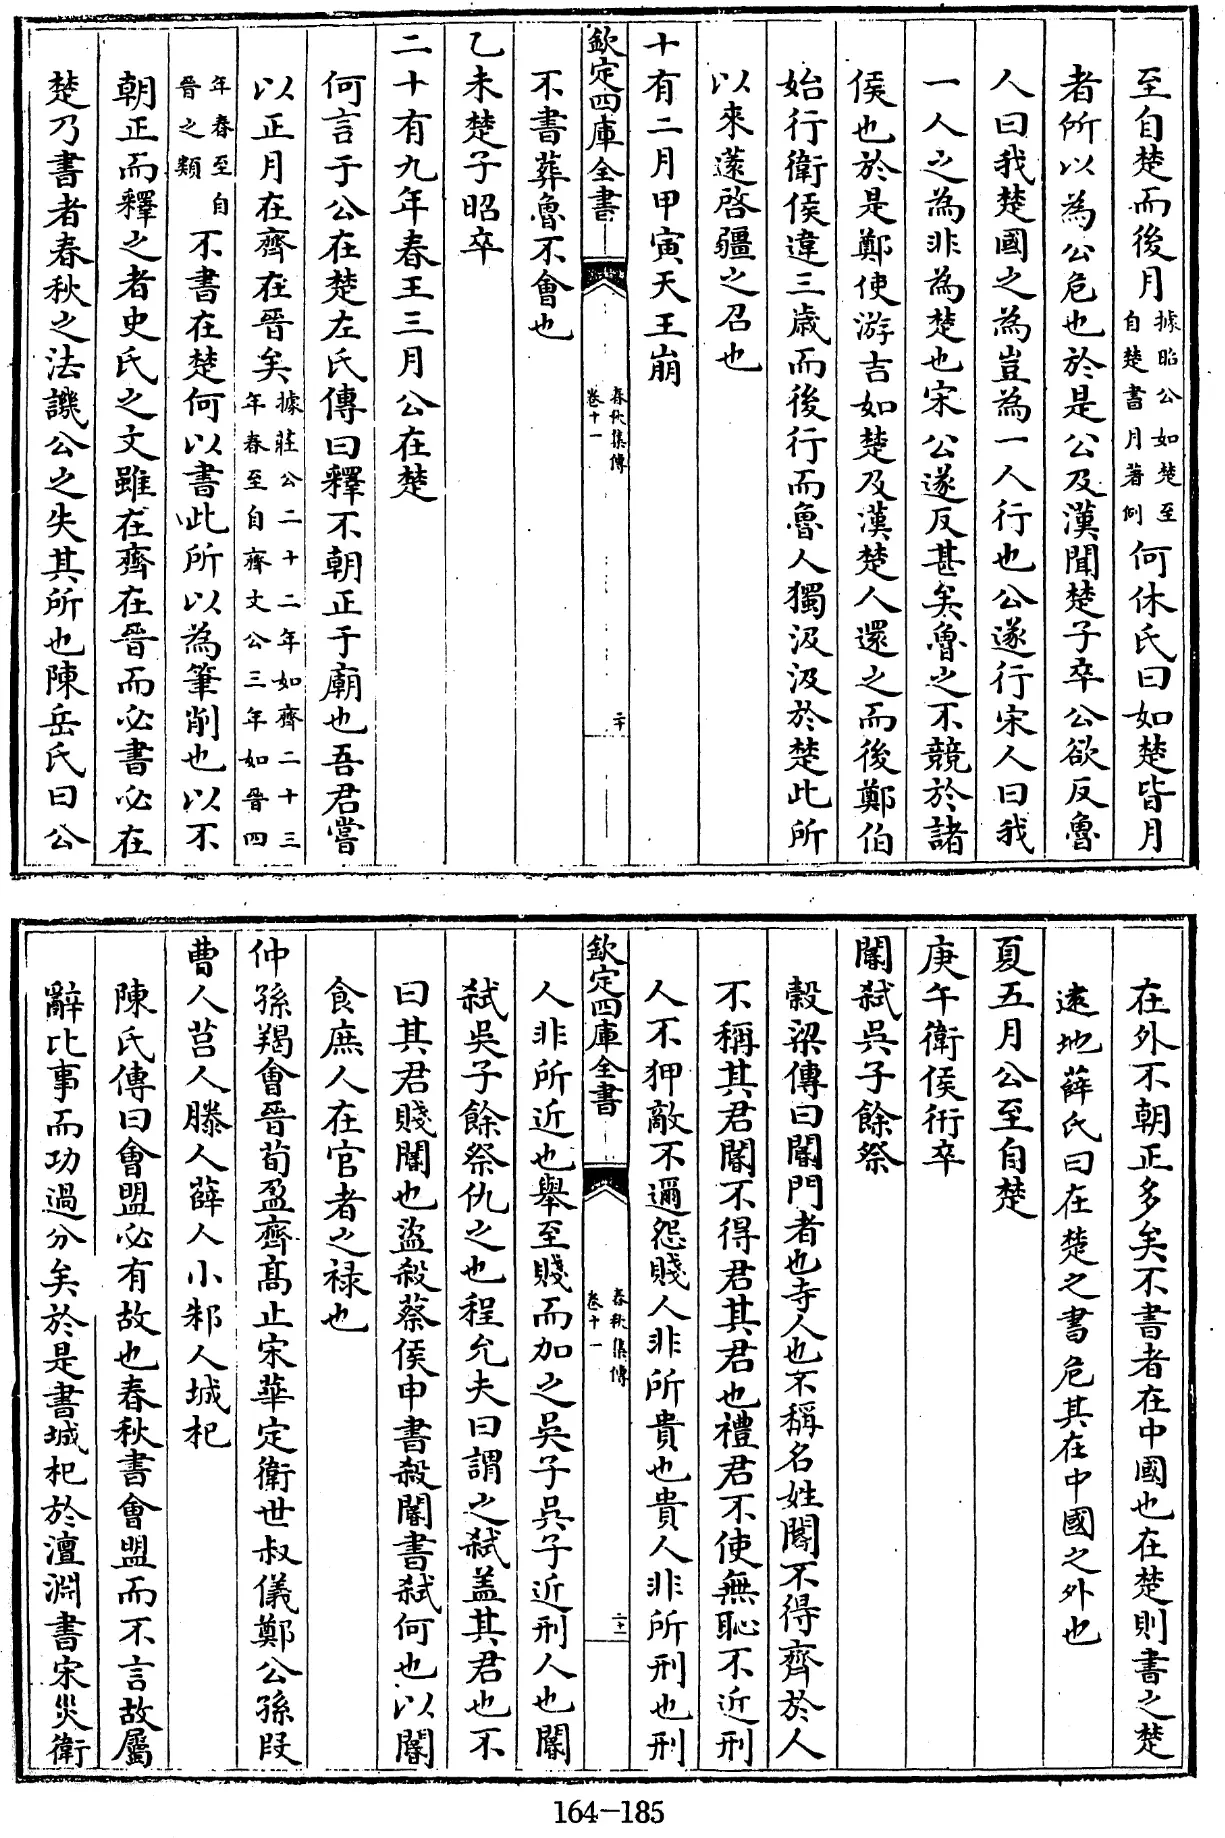 至自楚而後月據昭公如楚至自楚書月著例何休氏曰如楚皆月
者所以為公危也於是公及漢聞楚子卒公欲反魯
人曰我楚國之為豈為一人行也公遂行宋人曰我
一人之為非為楚也宋公遂反甚矣魯之不競於諸
侯也於是鄭使游吉如楚及漢楚人還之而後鄭伯
始行衛侯違三歲而後行而魯人獨汲汲於楚此所
以來薳啓疆之召也
十有二月甲寅天王崩
欽定四庫全書 春秋集傳 卷十一 二十
不書葬魯不會也
乙未楚子昭卒
二十有九年春王三月公在楚
何言于公在楚左氏傳曰釋不朝正于廟也吾君嘗
以正月在齊在晉矣據莊公二十二年如齊二十三年春至自齊文公三年如晉四
年春至自晉之類不書在楚何以書此所以為筆削也以不
朝正而釋之者史氏之文雖在齊在晉而必書必在
楚乃書者春秋之法譏公之失其所也陳岳氏曰公
在外不朝正多矣不書者在中國也在楚則書之楚
遠地薛氏曰在楚之書危其在中國之外也
夏五月公至自楚
庚午衛侯衎卒
閽弑吳子餘祭
穀梁傳曰閽門者也寺人也不稱名姓閽不得齊於人
不稱其君閽不得君其君也禮君不使無恥不近刑
人不狎敵不邇怨賤人非所貴也貴人非所刑也刑
欽定四庫全書 春秋集傳 卷十一 二十一
人非所近也舉至賤而加之吳子吳子近刑人也閽
弑吳子餘祭仇之也程允夫曰謂之弑盖其君也不
曰其君賤閽也盜殺蔡侯申書殺閽書弑何也以閽
食庶人在官者之祿也
仲孫羯會晉荀盈齊髙止宋華定衛世叔儀鄭公孫叚
曹人莒人滕人薛人小邾人城杞
陳氏傳曰會盟必有故也春秋書會盟而不言故屬
辭比事而功過分矣於是書城杞於澶淵書宋災衛
164-185